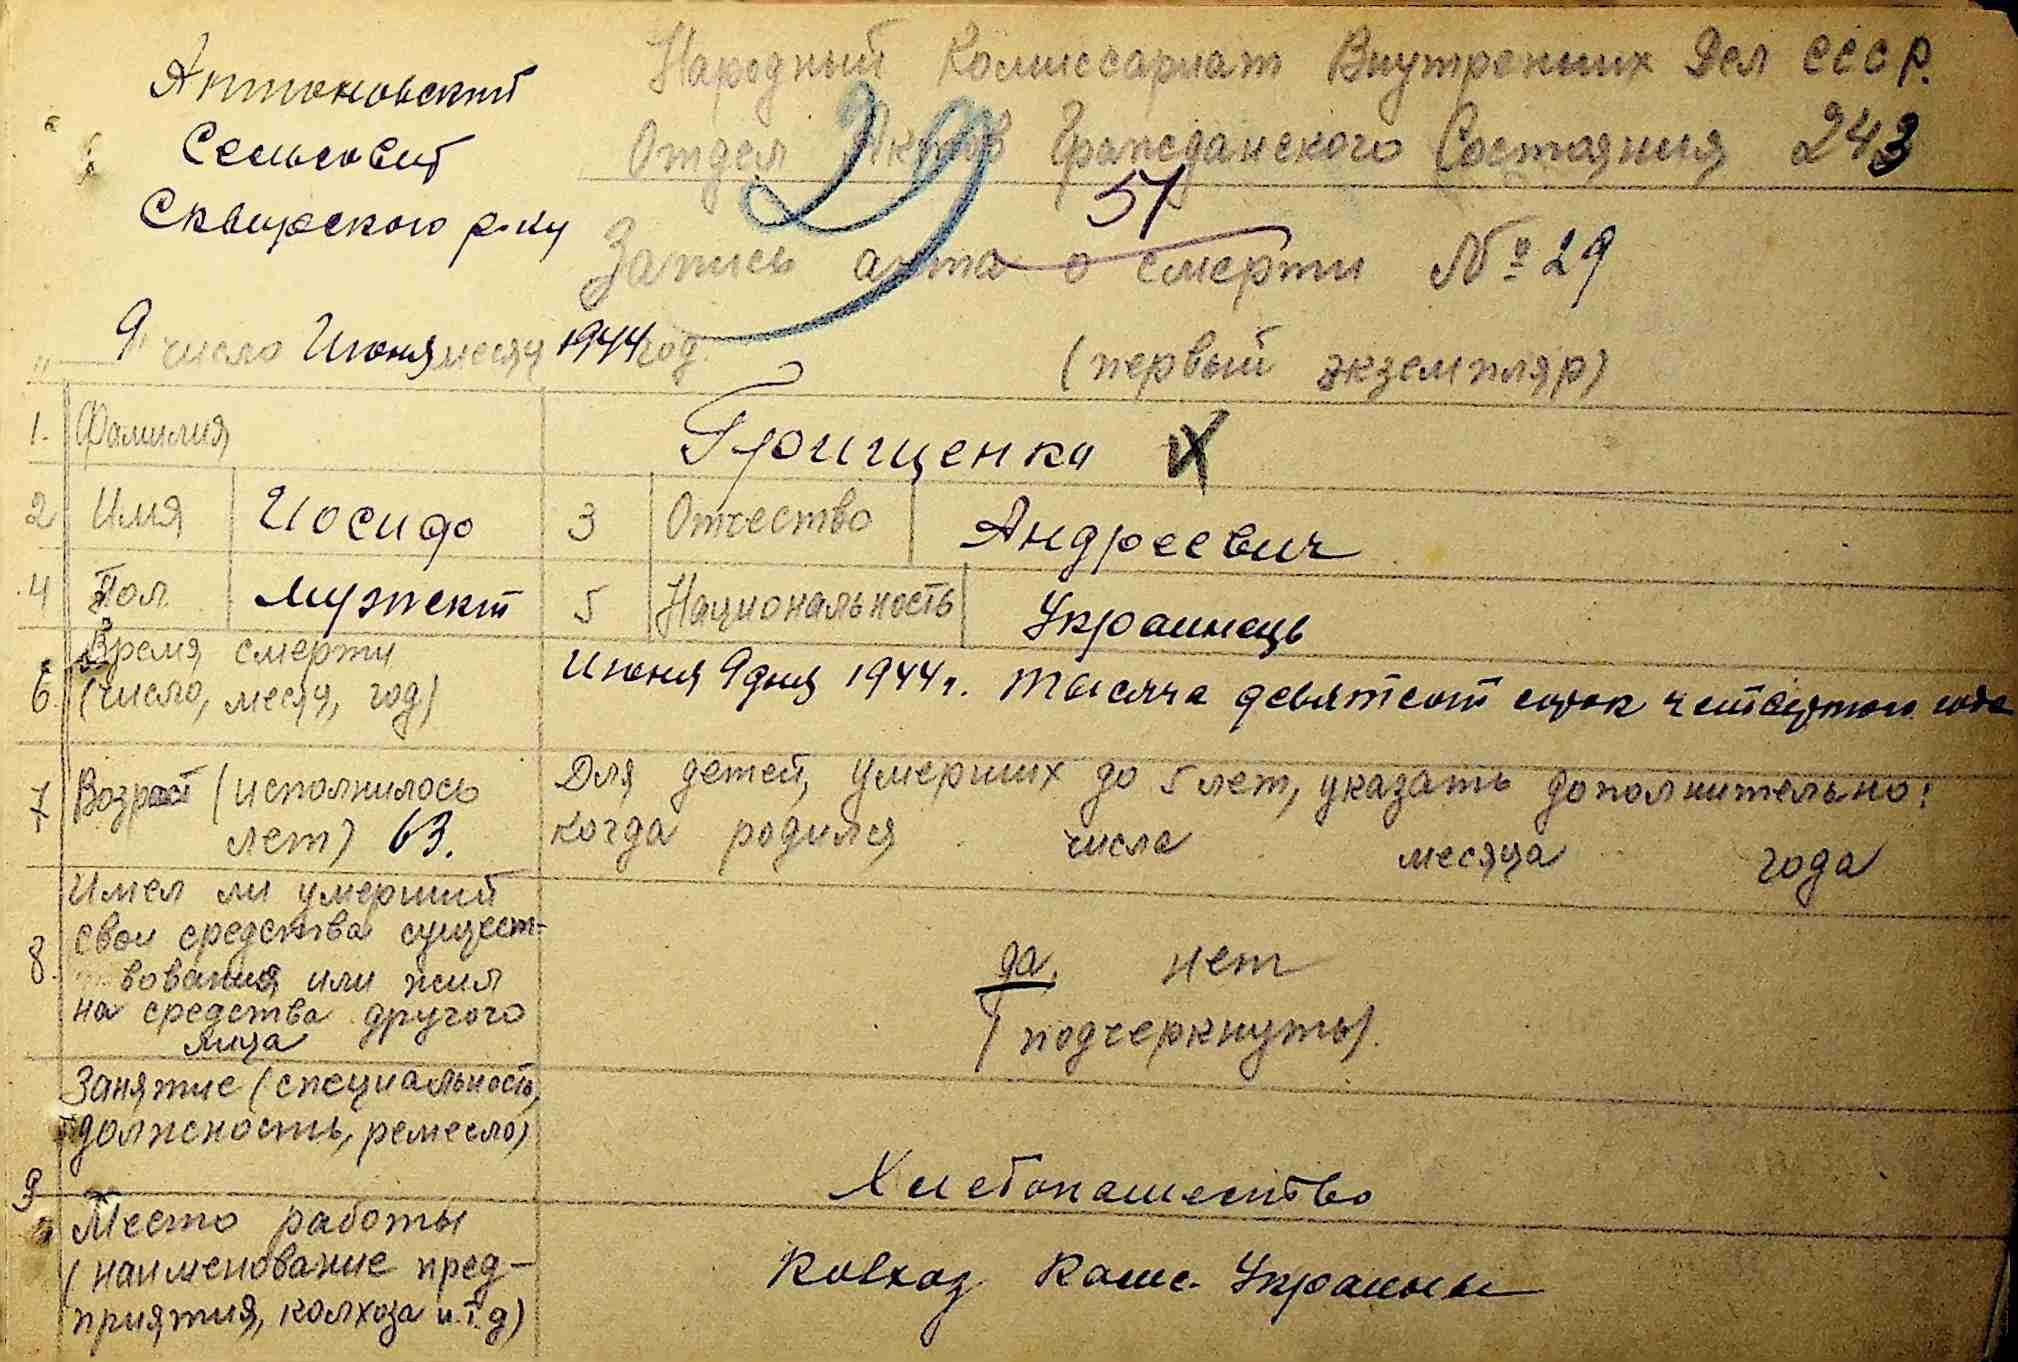 Антоновский
Сельсовет
Сквирского р-ну
Народный Комиссариат Внутренних Дел СССР.
Отдел Актов Гражданского Состояния 243
29
51
Запись акта о смерти № 29
"9" число Июня месяц 1944 год.
(первый экземпляр)
1. Фамилия Грищенко
2 Имя Иосиф 3 Отчество Андреевич
4 Пол мужскт 5 Национальность Украинець
6. Время смерти (число, месяц, год) Июня 9 дня 1944 г. тысяча девятсот сорок четвертого года
7 Возраст (исполнилось
лет) 63.
Для детей, умерших до 5 лет, указать дополнительно:
когда родился числа месяца года
8. Имел ли умерший
свои средства сущест-
вования или жил
на средства другого
лица
да. нет
(подчеркнуть).
9 Занятие (специальность,
должность, ремесло)
Хлебопашество
Место работы
(наименование пред-
приятия, колхоза и.т.д)
Колхоз Украины